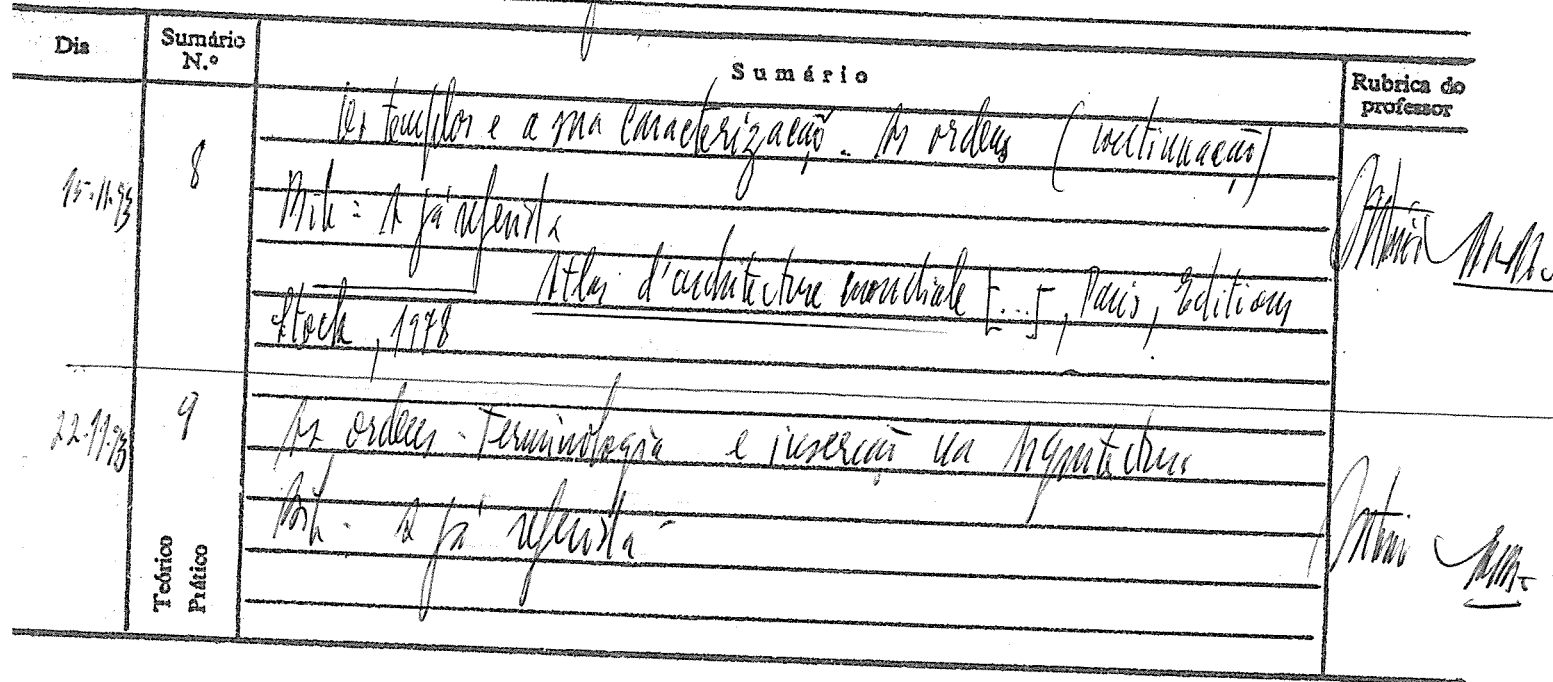 Dia
Sumário N.º
Sumário
Rubrica do professor
15-11-93
8
Os templos e a sua caracterização. As ordens (continuação)
Bib: A já referida
Atlas d'architecture mondiale [...], Paris, Editions
Stock, 1978
22-11-93
9
As ordens - Terminologia e inserção na Arquitectura
Bib. A já referida
Teórico
Prático